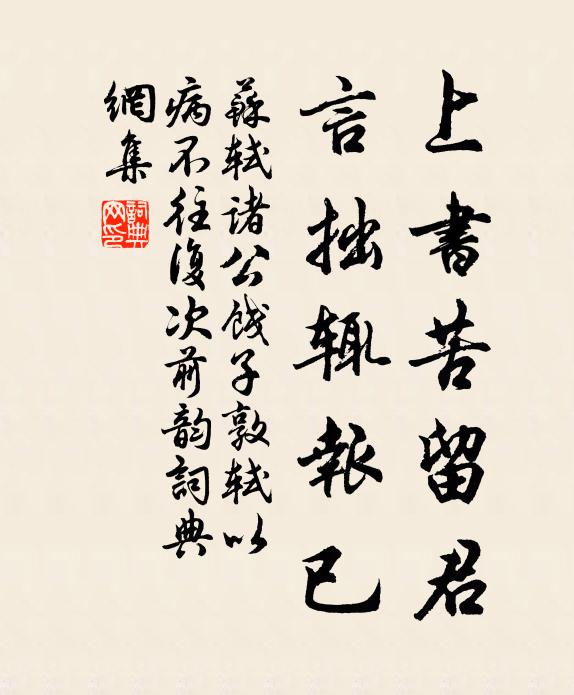 上書苦留君
言拙輒報已
蘇軾諸公餞子敦軾以
病不往復次前韵詞典
網集
詞典網印